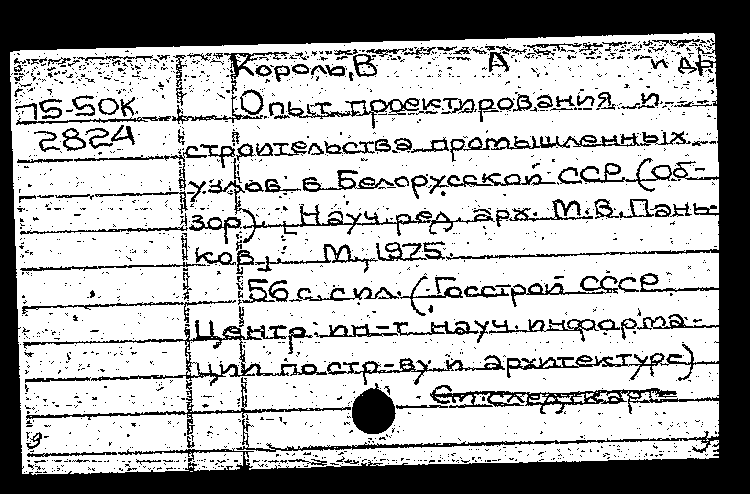 Король, В А и др
75-50К
2824
Опыт проектирования и
строительства промышленных
узлов в Белорусской ССР. (Об-
зор). [Науч. ред. арх. М.В. Пань-
ков]. М., 1975.
56 с. с ил. (Госстрой СССР
Центр. ин-т науч. информа-
ции по стр-ву и архитектуре)
См. след. карт